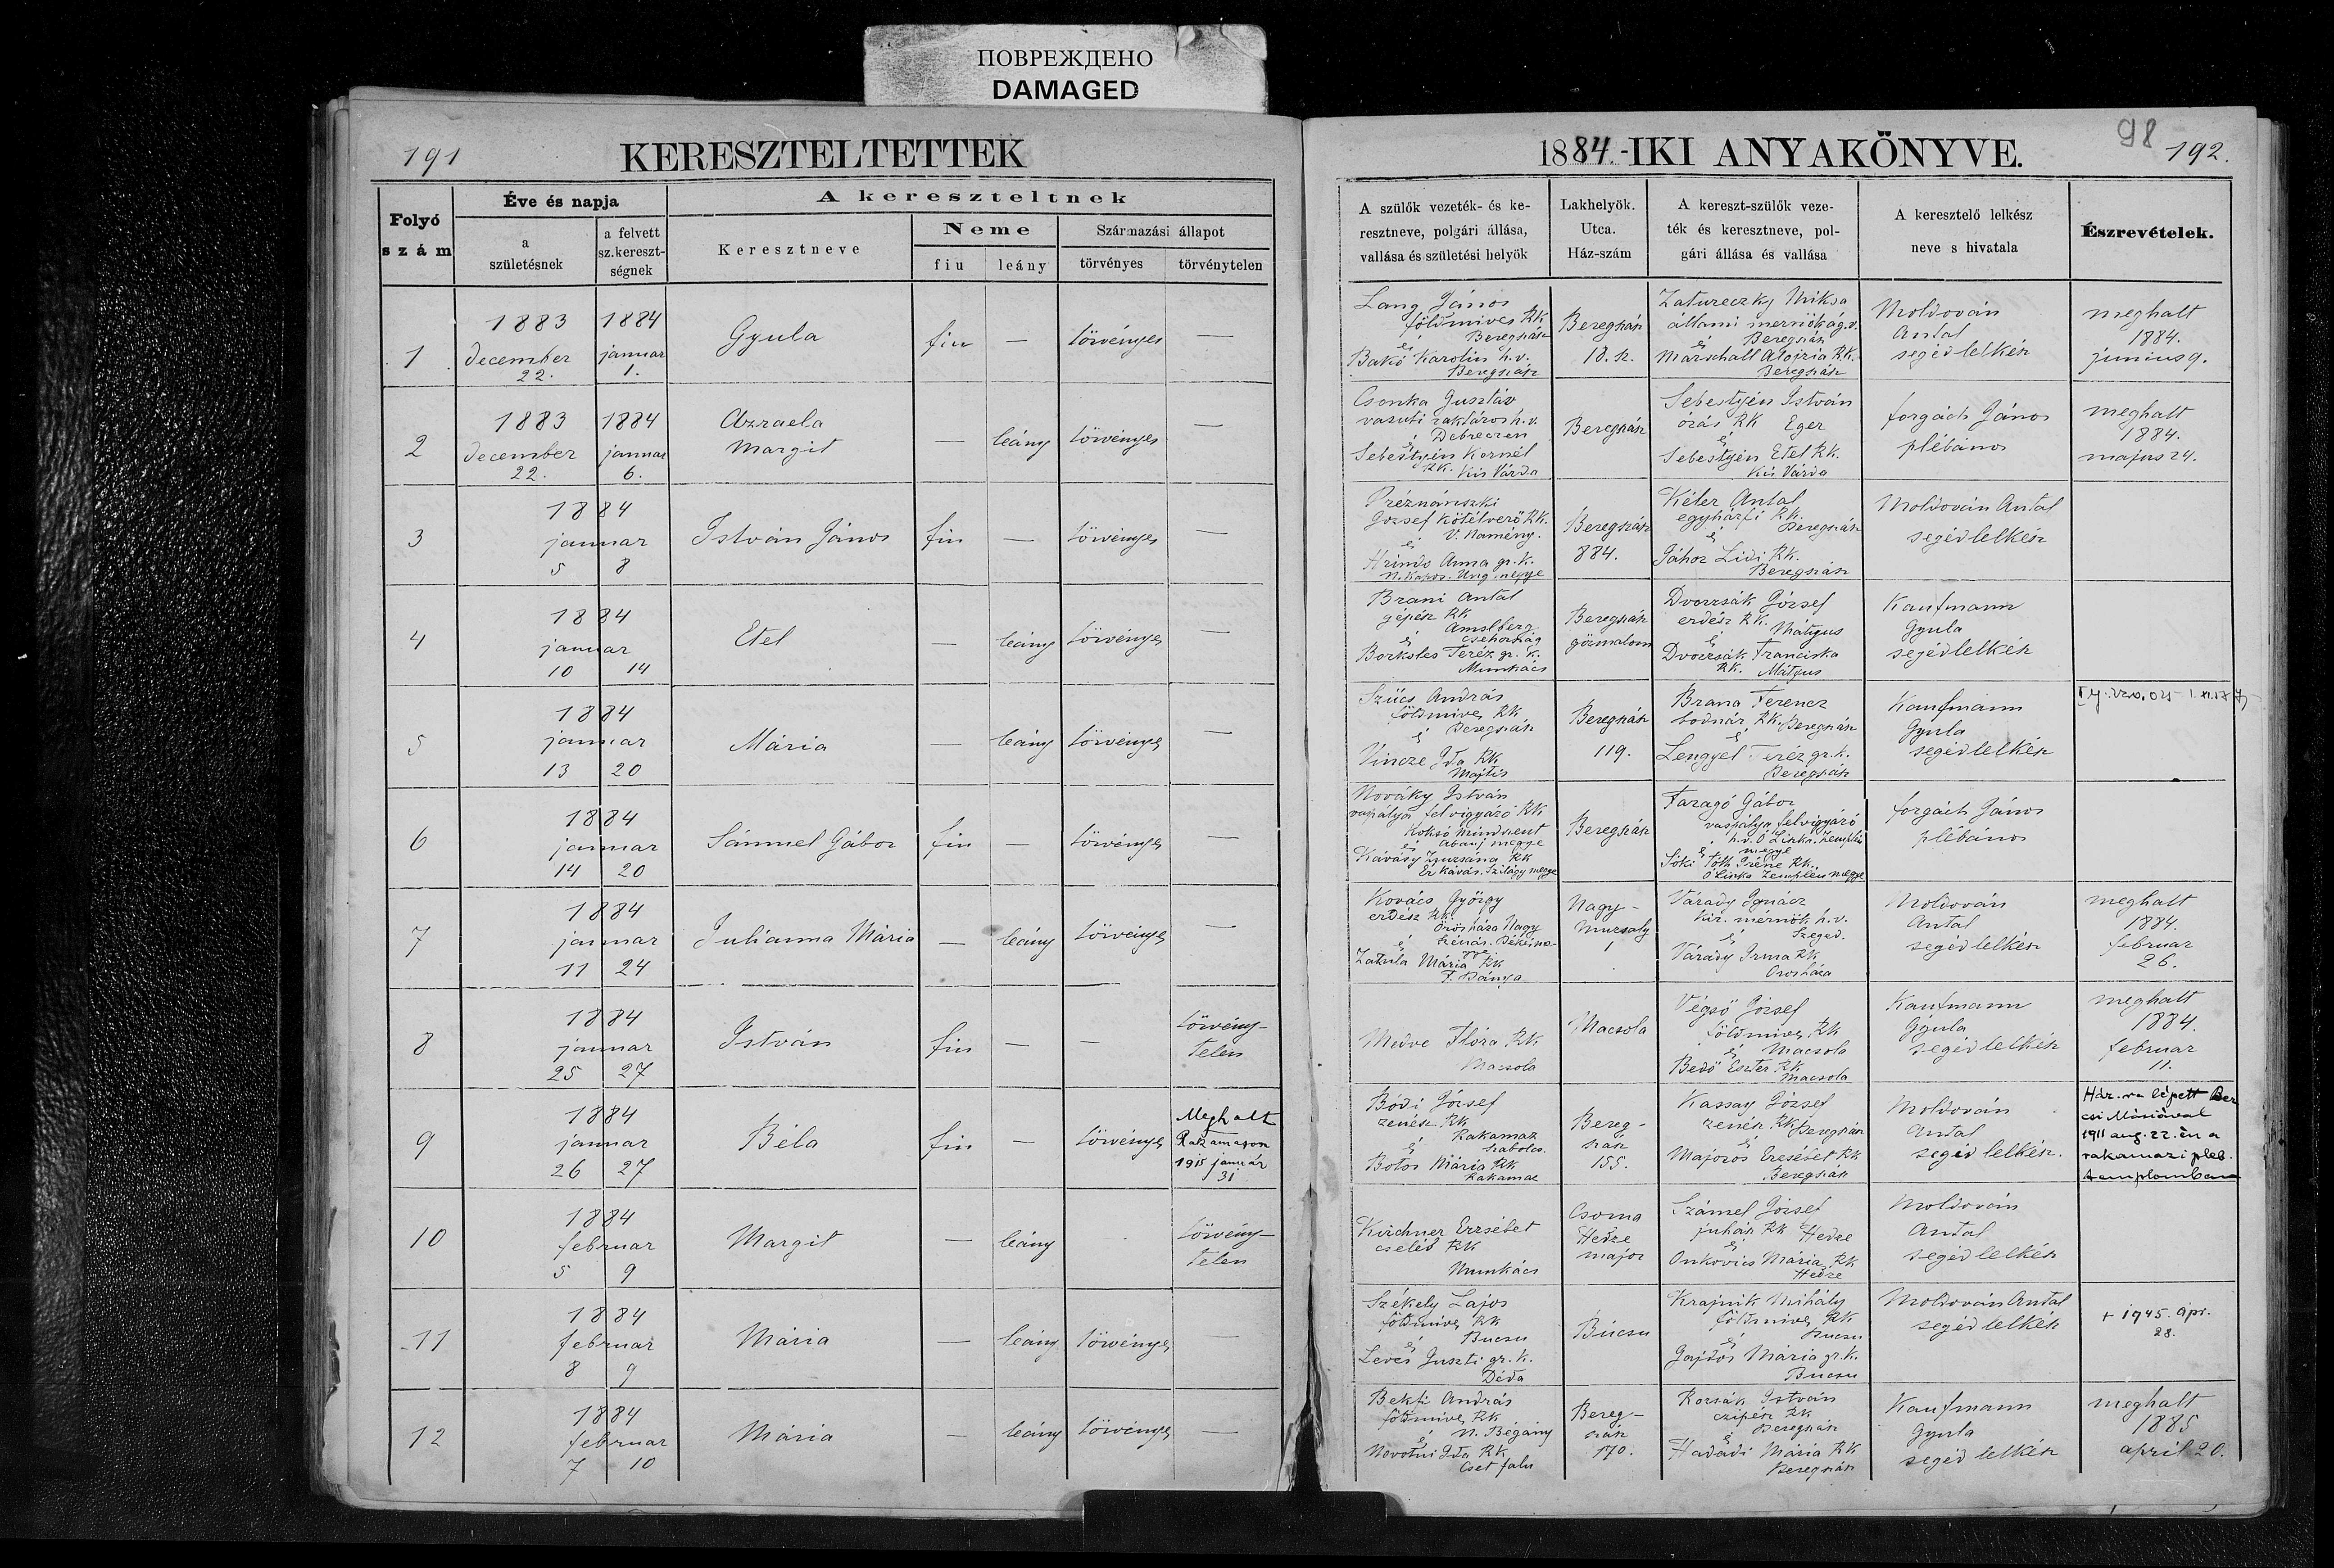 ПОВРЕЖДЕНО
DAMAGED
191
KERESZTELTETTEK
Folyó szám
Éve és napja
a születésnek
a felvett sz.kereszt-ségnek
A kereszteltnek
Keresztneve
Neme
fiu
leány
Származási állapot
törvényes
törvénytelen
1884.-IKI ANYAKÖNYVE.
98
192.
A szülők vezeték- és ke-
resztneve, polgári állása,
vallása és születési helyök
Lakhelyök.
Utca.
Ház-szám
A kereszt-szülők veze-
ték és keresztneve, pol-
gári állása és vallása
A keresztelő lelkész
neve s hivatala
Észrevételek.
1
1883 december 22.
1884 januar 1.
Gyula
fiu
—
törvényes
—
Lang János
földmives RK
Beregszász
és
Bakó Karolin h.v.
Beregszász
Beregszász
18. sz.
Zatureczky Miksa
állami mernök ág.v.
Beregszász
és
Marschall Alojzia RK.
Beregszász
Moldován
Antal
segédlelkész
meghalt
1884.
junius 9.
2
1883 december 22.
1884 januar 6.
Azraela
Margit
—
leány
törvényes
—
Csonka Gusztáv
vasuti raktáros h.v.
Debreczen
és
Sebestyén Kornél
RK. Kis Várda
Beregszász
Sebestyén István
órás RK Eger
és
Sebestyén Etel RK.
Kis Várda
forgách János
plébános
meghalt
1884.
majus 24.
3
1884
januar
5 8
István János
fiu
—
törvényes
—
József Kötélverő RK.
V. Namény.
és
Hrindo Anna gr. k.
N. Kapos. Ung megye
Beregszász
884.
Kéler Antal
egyházfi RK.
Beregszász
és
Jáhor Lidi RK.
Beregszász
Moldován Antal
segédlelkész
4
1884
januar
10 14
Etel
—
leány
törvényes
—
Brani Antal
gépész RK
Amslberg
és Csehország
Borkoles Teréz gr. k.
Munkács
Beregszász
gőzmalom
Dvorzsák József
erdész RK.
és Mátyus
Dvorzsák Franciska
RK. Mátyus
Kaufmann
Gyula
segédlelkész
5
1884
januar
13 20
Mária
—
leány
törvényes
—
Szűcs András
földmives RK
és Beregszász
Vincze Ida RK
Majtis
Beregszász
119.
Brana Ferencz
bodnár RK. Beregszász
és
Lengyel Teréz gr. k.
Beregszász
Kaufmann
Gyula
segédlelkész
6
1884
januar
14 20
Sámuel Gábor
fiu
—
törvényes
—
Nováky István
vaspálya felvigyázó RK
Koksó Mindszent
és Abauj megye
Kávásy Zsuzsána RK
Er Kávás. Szilágy megye
Beregszász
Faragó Gábor
vaspálya felvigyázó
h.v. O Liszka. Zemplén
és megye
Sóki Tóth Iréne RK.
O Liszka Zemplén megye
forgách János
plébános
7
1884
januar
11 24
Julianna Mária
—
leány
törvényes
—
Kovács György
erdész RK.
Orosháza Nagy
és Szénás. Békésme-
gye
Zatula Mária RK
F. Bánya
Nagy-
Muzsaly
1
Várady Ignácz
kir. mérnök h.v.
és Szeged.
Várady Irma RK
Orosháza
Moldován
Antal
segédlelkész
meghalt
1884.
februar
26.
8
1884
januar
25 27
István
fiu
—
—
törvény-
telen
Medve Flóra RK
Macsola
Macsola
Végső József
földmives RK
és Macsola
Bedő Eszter RK
Macsola
Kaufmann
Gyula
segédlelkész
meghalt
1884.
februar
11.
9
1884
januar
26 27
Béla
fiu
—
törvényes
Meghalt
Rakamazon
1915 január
31
Bódi József
zenész RK
Rakamaz
és szabolcs.
Botos Mária RK
Rakamaz
Bereg-
szász
155.
Kassay József
zenész RK Beregszász
és
Majoros Erzsébet RK
Beregszász
Moldován
Antal
segéd lelkész.
Ház.-ra lépett Ber
csi Máriával
1911 aug. 22.-én a
rakamazi pleb.
templomban
10
1884
februar
5 9
Margit
—
leány
törvény-
telen
Kirchner Erzsébet
cseléd RK
Munkács
Csoma
Hedze
major
Számel József
juhász RK Hedze
és
Onkovics Mária RK
Hedze
Moldován
Antal
segédlelkész
11
1884
februar
8 9
Mária
—
leány
törvényes
—
Székely Lajos
földmives RK
és Bucsu
Leves Guszti gr. k.
Déda
Búcsu
Krajnik Mihály
földmives RK
és Bucsu
Gajdos Mária gr. k.
Bucsu
Moldován Antal
segédlelkész
+ 1945. ápr.
28.
12
1884
februar
7 10
Mária
—
leány
törvényes
—
Bekfi András
földmives RK
és N. Bégány
Novotni Ida RK.
Cset falu
Bereg-
szász
170.
Rozsák István
czipész RK
és Beregszász
Hadadi Mária RK
Beregszász
Kaufmann
Gyula
segéd lelkész
meghalt
1885
april 20.